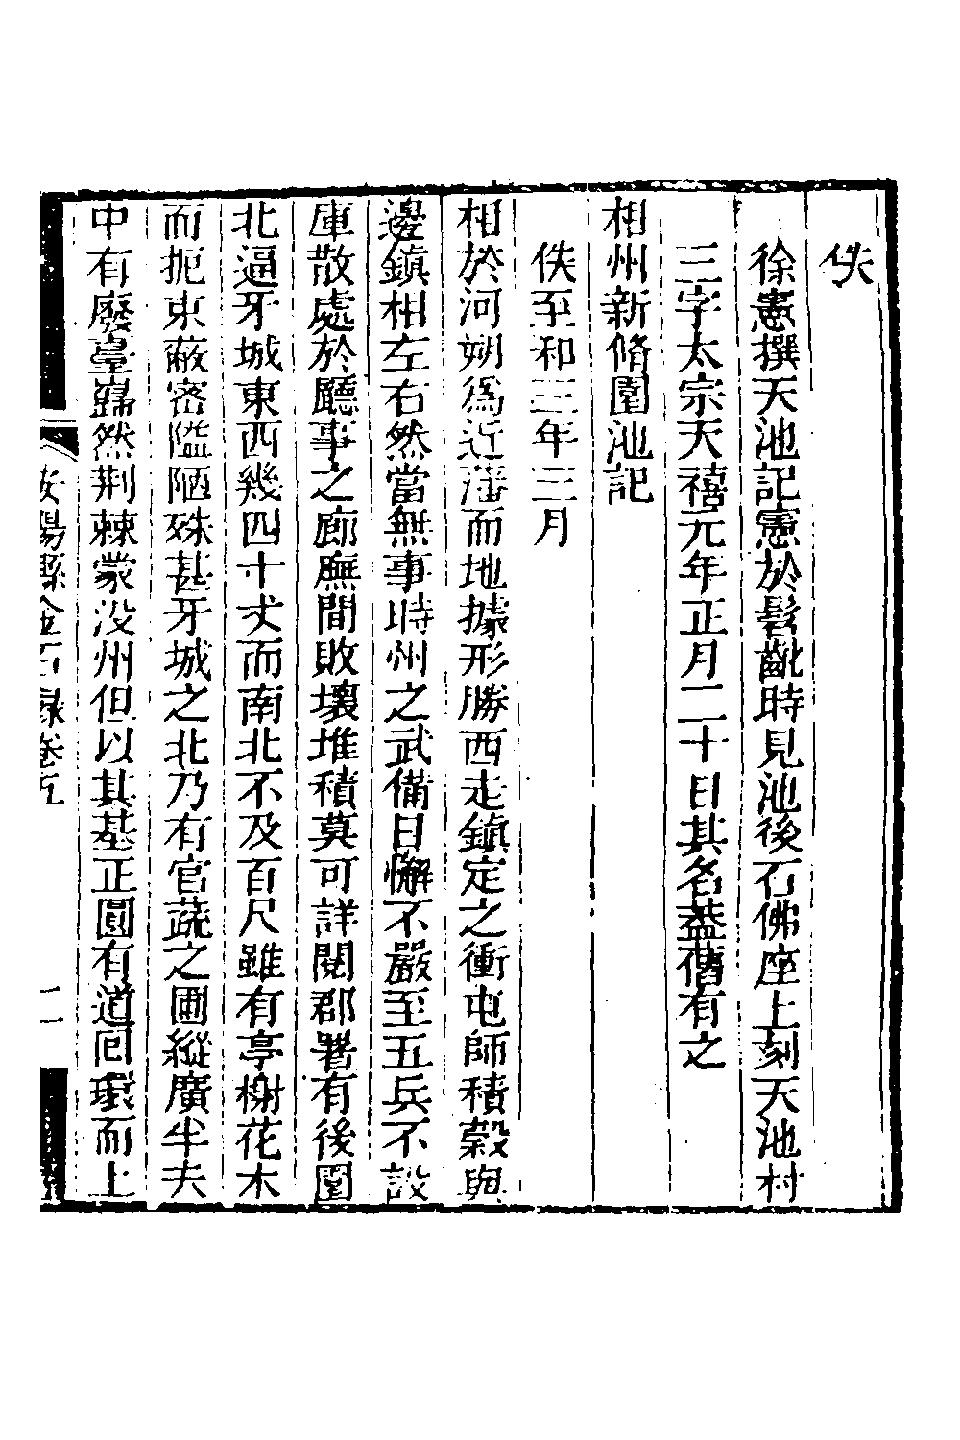 佚
徐憲撰天池記憲於髫齔時見池後石佛座上刻天池村
三字太宗天禧元年正月二十日其名蓋舊有之
相州新脩園池記
佚至和三年三月
相於河朔爲近藩而地據形勝西走鎮定之衝屯師積穀與
邊鎮相左右然當無事時州之武備日懈不嚴至五兵不設
庫散處於廳事之廊廡間敗壞堆積莫可詳閱郡署有後園
北逼牙城東西幾四十丈而南北不及百尺雖有亭榭花木
而扼束蔽密隘陋殊甚牙城之北乃有官蔬之圃縱廣半夫
中有廢臺巋然荆棘蒙没州但以其基正圓有道囘環而上
安陽縣金石錄卷五
二